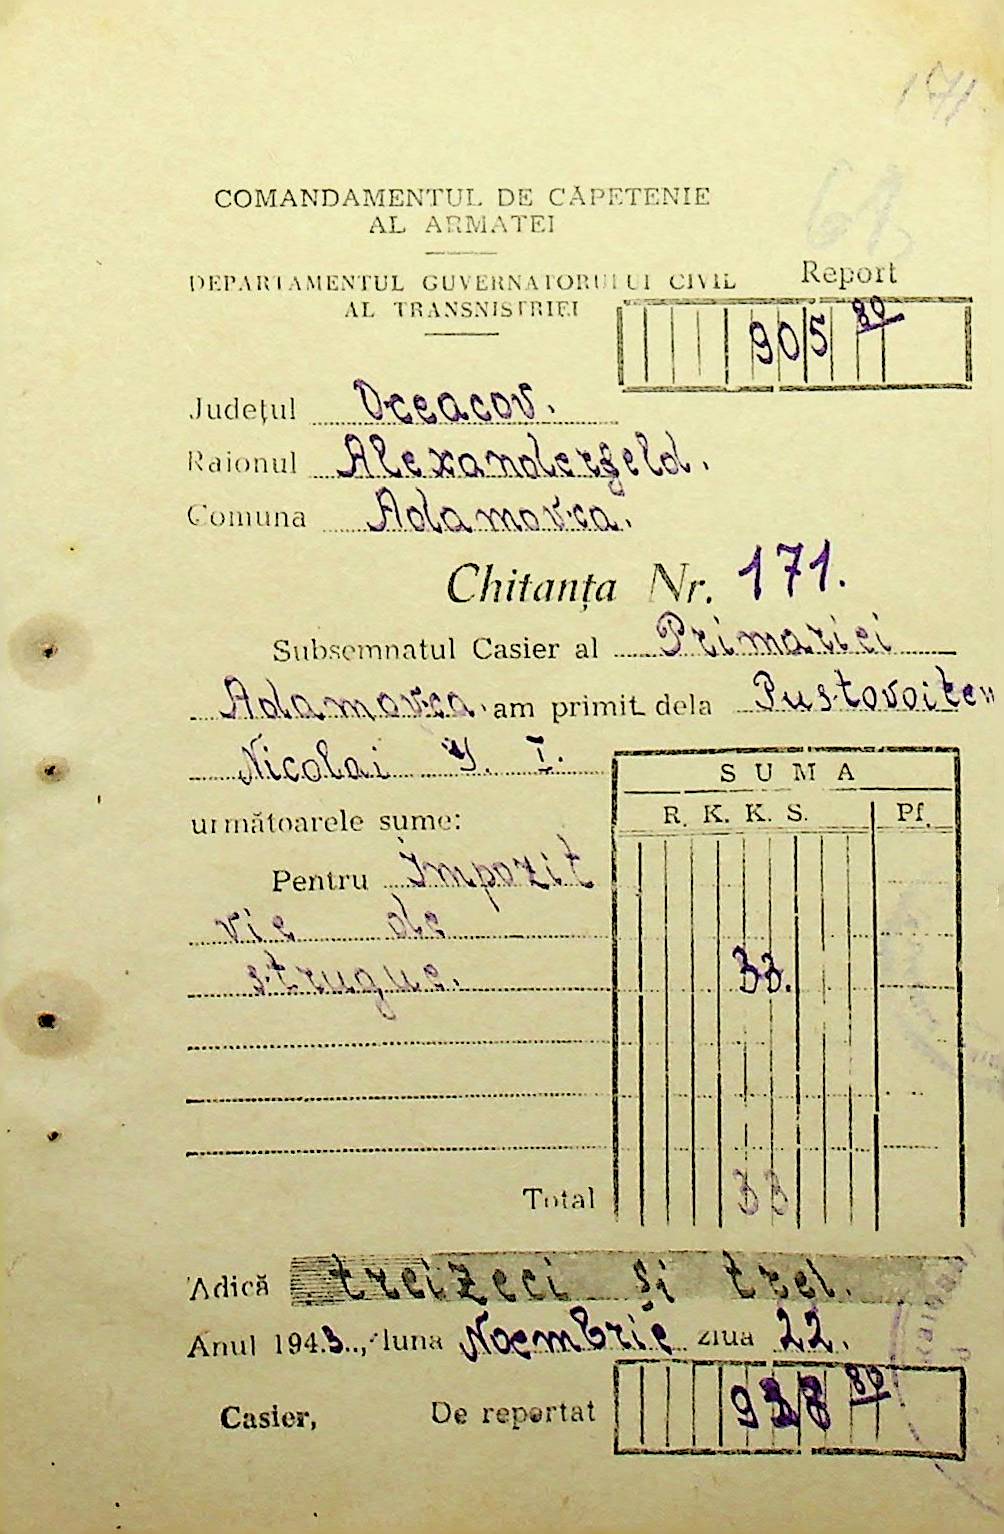 171
61
COMANDAMENTUL DE CĂPETENIE
AL ARMATEI
DEPARTAMENTUL GUVERNATORULUI CIVIL
AL TRANSNISTRIEI
Report
905 80
Județul Oceacov.
Raionul Alexanderfeld.
Comuna Adamovca.
Chitanța Nr. 171.
Subsemnatul Casier al Primariei
Adamovca. am primit dela Pustovoiten
Nicolai I.
SUMA
următoarele sume:
R. K. K. S. Pf.
Pentru Impozit
vie de
strugue. 33.
Total 33
Adică treizeci și trei.
Anul 1943.., luna Noembrie ziua 22.
Casier, De reportat 938 80